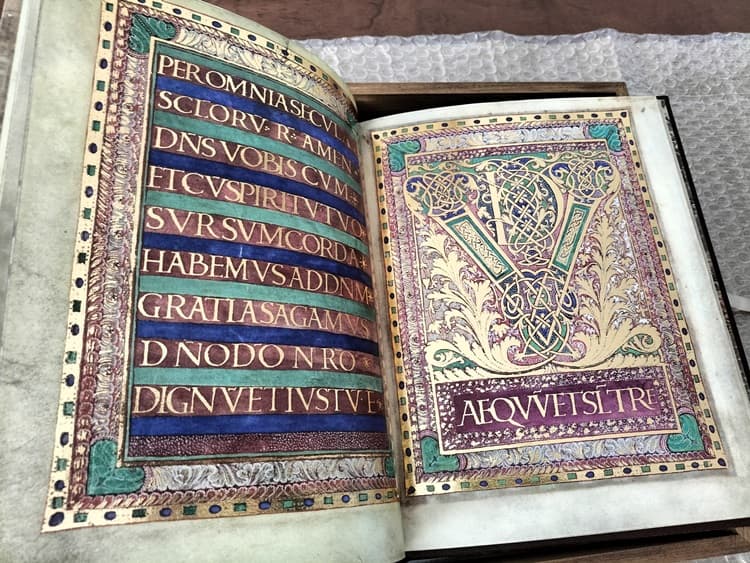 PER OMNIA SECVL
SCLORV· R· AMEN
DN̄S VOBISCVM
ET CVSPIRITVTVO
SVRSVMCORDA
HABEMVSADDN̄M
GRATIASAGAMVS
DN̄ODŌNRO
DIGNVETIVSTVE
VD
AEQVV̄ETSĪTRE